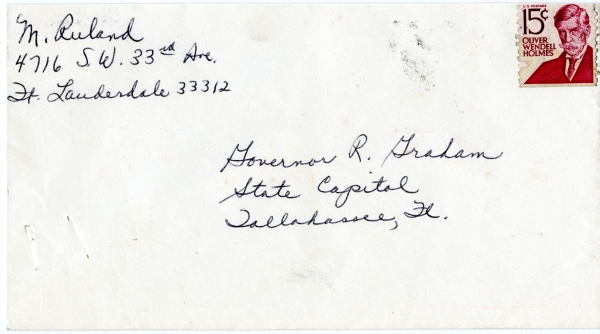 M. Ruland
4716 S.W. 33rd Ave.
Ft. Lauderdale 33312
U.S. POSTAGE
15¢
OLIVER
WENDELL
HOLMES
Governor R. Graham
State Capitol
Tallahassee, Fl.